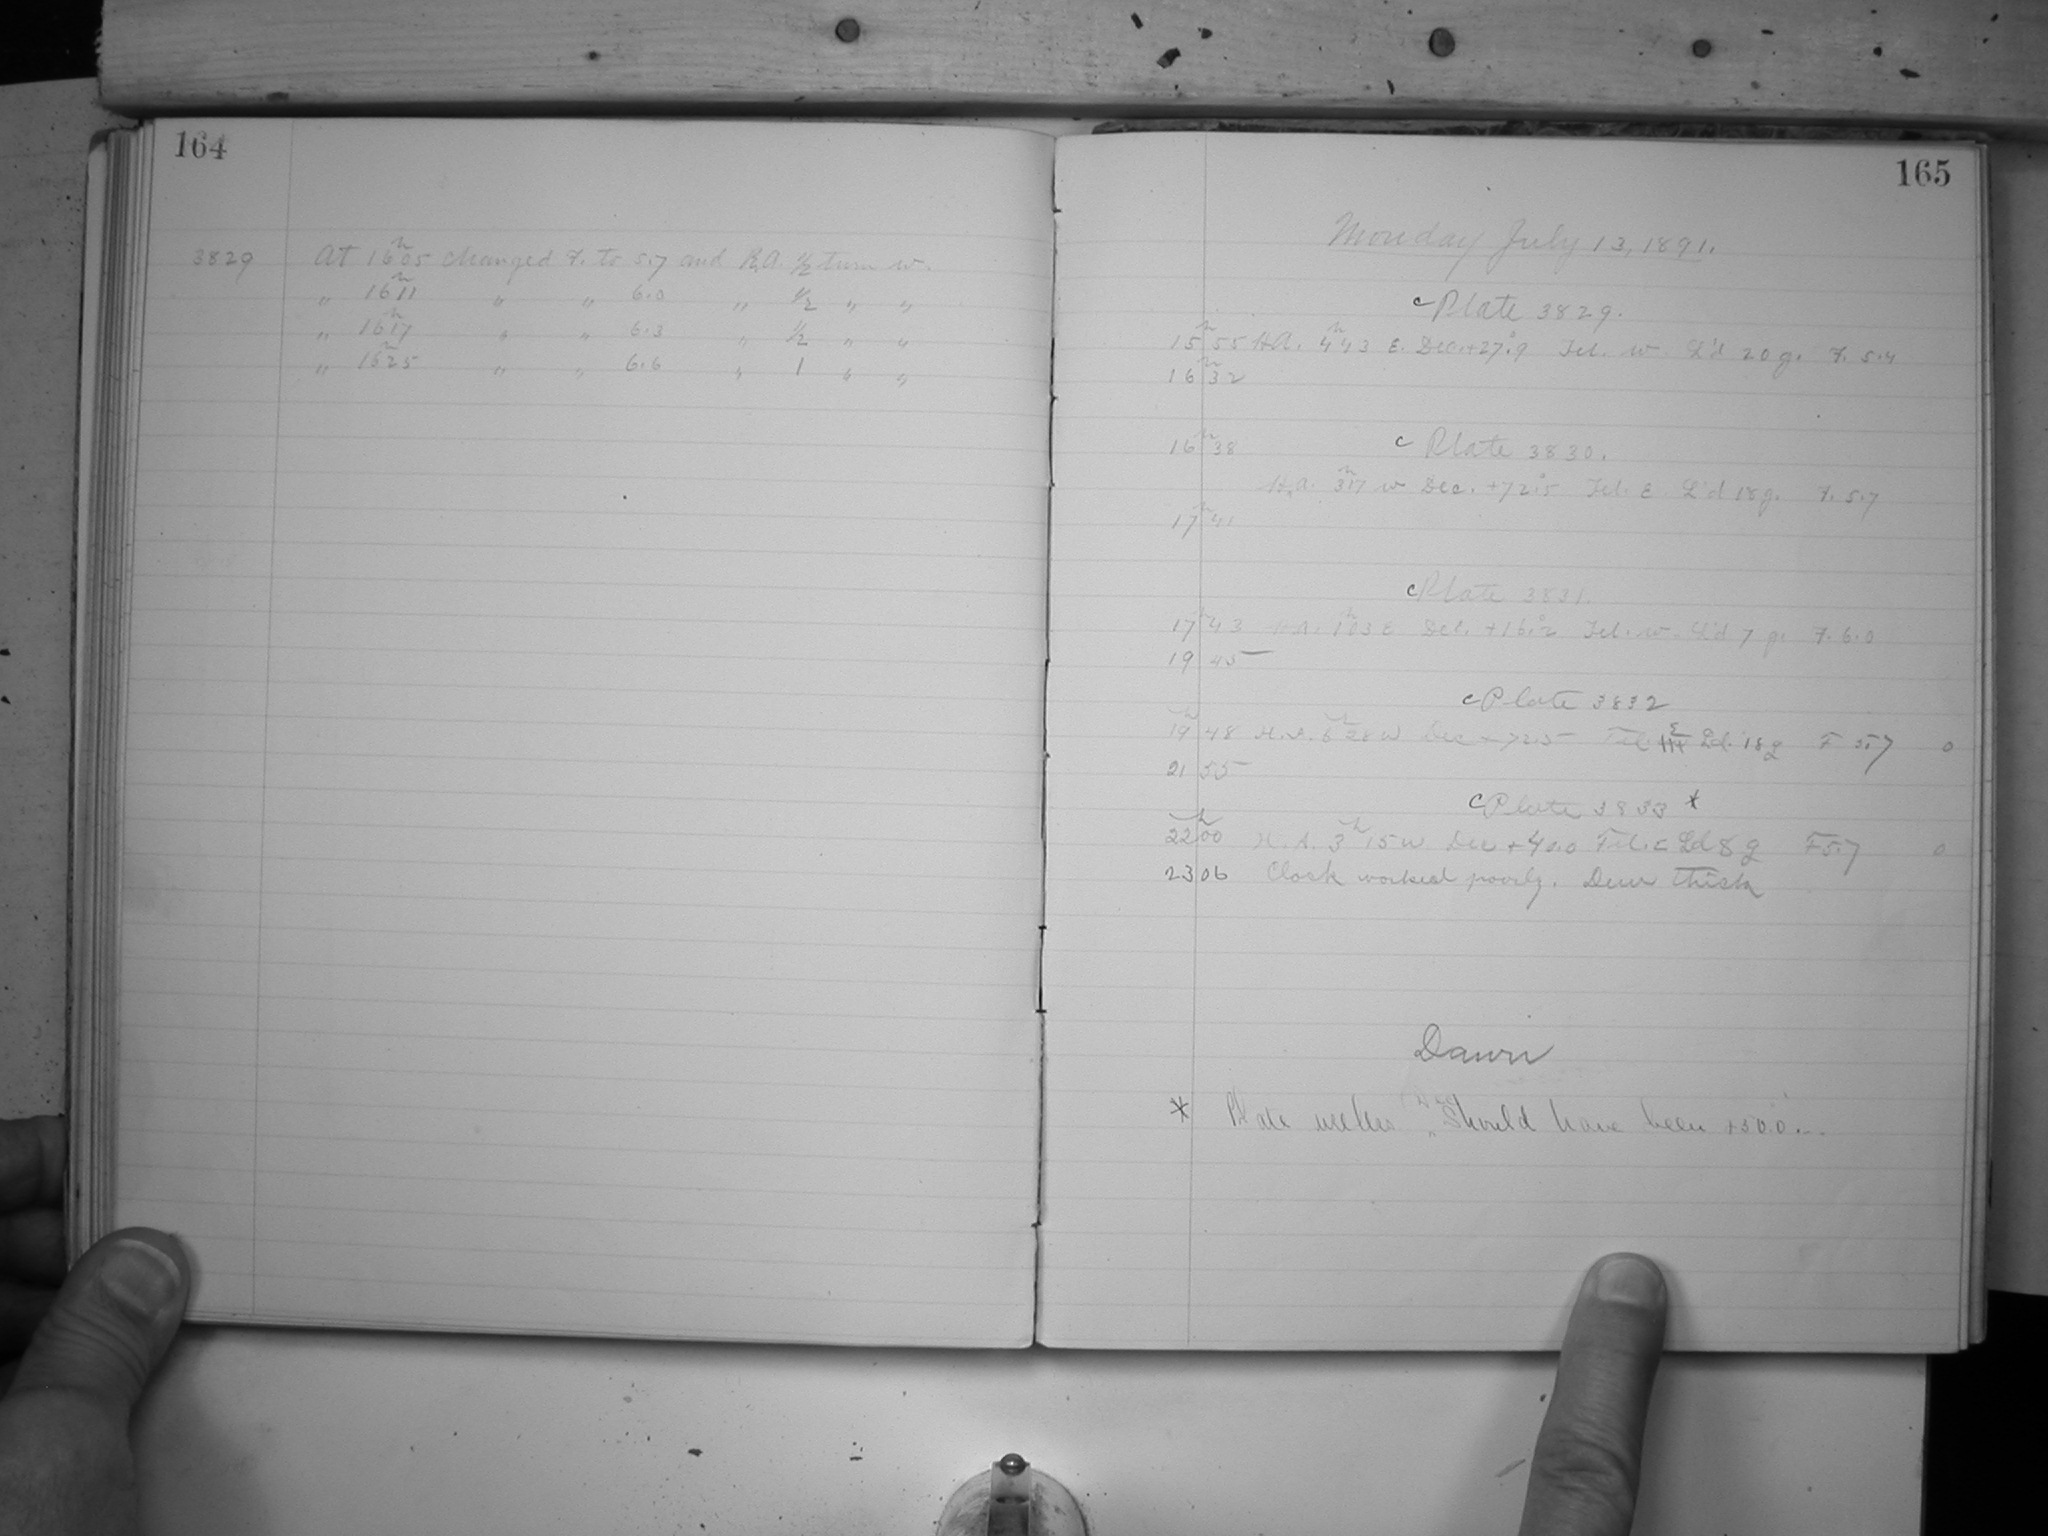 164
3829 At 16h05 changed F. to 5.7 and R.A. 1/2 turn w.
" 16h11 " " 6.0 " 1/2 " "
" 16h17 " " 6.3 " 1/2 " "
" 16h25 " " 6.6 " 1 " "
165
Monday July 13, 1891.
c Plate 3829.
15h55 H.A. 4h43 E. Dec. +27°.9 Tel. w. L'd 20 g. F. 5.4
16h32
16h38 c Plate 3830.
H.A. 3h17 w Dec. +72°.5 Tel. E. L'd 18 g. F. 5.7
17h41
c Plate 3831.
17h43 H.A. 1h03 E Dec. +16°.2 Tel. w. L'd 7 g. F. 6.0
19 45
c Plate 3832
19h48 H.A. 6h28 w Dec +72.5 Tel. E Ld. 18 g F 5.7 0
21 55
c Plate 3833 *
22h00 H.A. 3h15 w Dec +40.0 Tel. E Ld 8 g F 5.7 0
23 06 Clock worked poorly. Dew thick
Dawn
* Plate Dec should have been +30.0